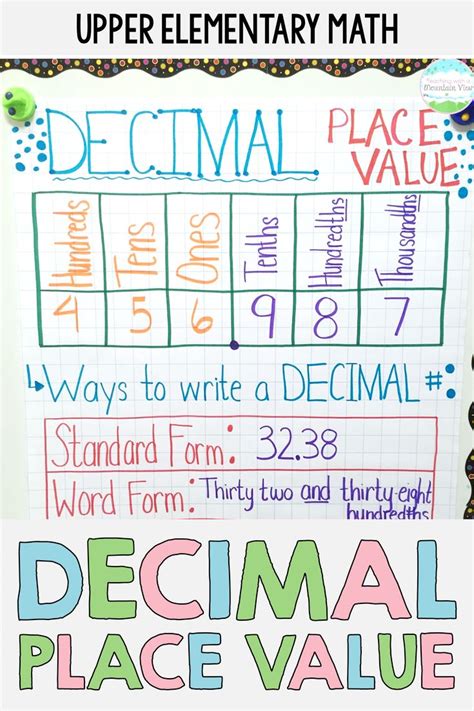 UPPER ELEMENTARY MATH
Teaching with a
Mountain View
DECIMAL PLACE
VALUE
Hundreds Tens Ones Tenths Hundredths Thousandths
4 5 6 . 9 8 7
Ways to write a DECIMAL #:
Standard Form: 32.38
Word Form: Thirty two and thirty-eight
hundredths
DECIMAL
PLACE VALUE